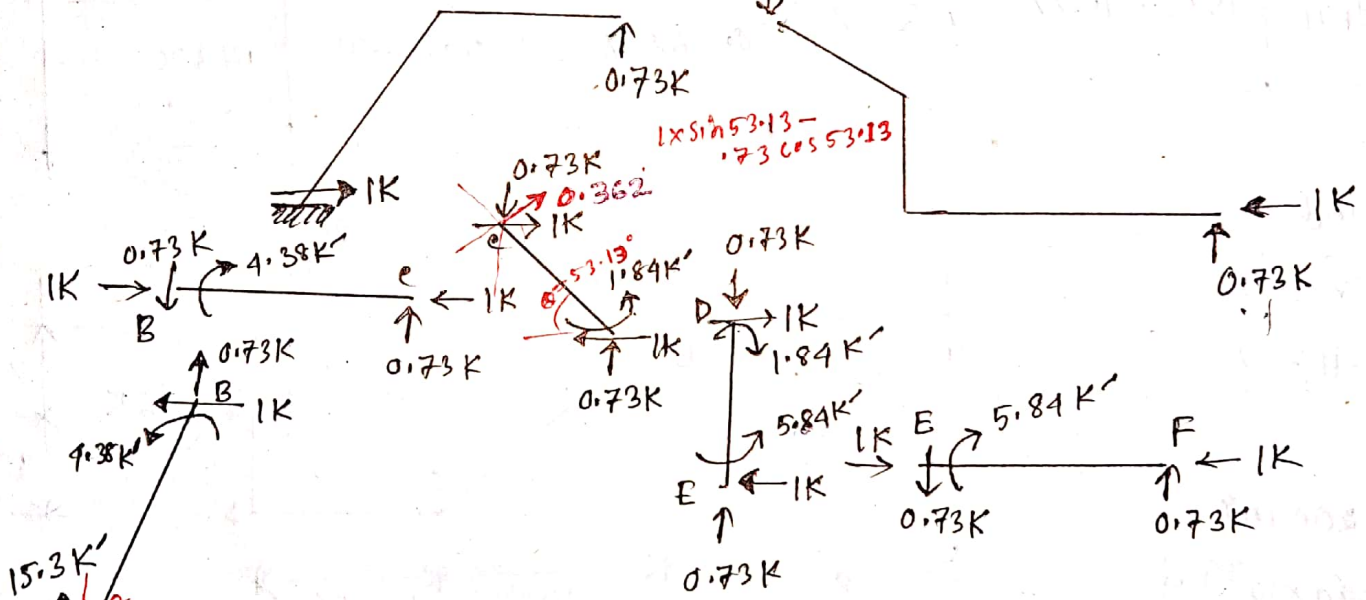 0.73K
1K
1×sin53.13-
.73 cos 53.13
0.73K
0.362
1K
1K
0.73K
0.73K
4.38K'
1K
B
C
1K
0.73K
C
θ=53.13°
1.84K'
1K
0.73K
0.73K
D
1K
1.84K'
0.73K
B
1K
4.38K'
15.3K'
5.84K'
E
1K
0.73K
1K
E
5.84K'
F
1K
0.73K
0.73K